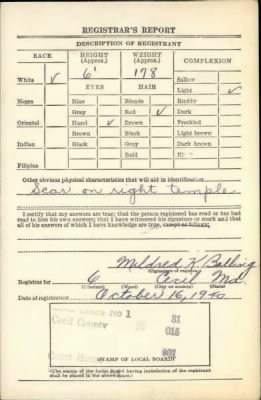 REGISTRAR'S REPORT
DESCRIPTION OF REGISTRANT
RACE HEIGHT (Approx.) WEIGHT (Approx.) COMPLEXION
6' 178 Sallow
White ✓ EYES HAIR Light ✓
Negro Blue Blonde Ruddy
Gray Red ✓ Dark
Oriental Hazel ✓ Brown Freckled
Brown Black Light brown
Indian Black Gray Dark brown
Bald Bl
Filipino
Other obvious physical characteristics that will aid in identification
Scar on right temple
I certify that my answers are true; that the person registered has read or has had
read to him his own answers; that I have witnessed his signature or mark and that
all of his answers of which I have knowledge are true, except as follows:
Mildred K. Balling
(Signature of registrar)
Registrar for 6 Cecil Md.
(Precinct) (Ward) (City or county) (State)
Date of registration October 16, 1940
No 1 31
Cecil County 015
001
(STAMP OF LOCAL BOARD)
(The stamp of the Local Board having jurisdiction of the registrant
shall be placed in the above space.)